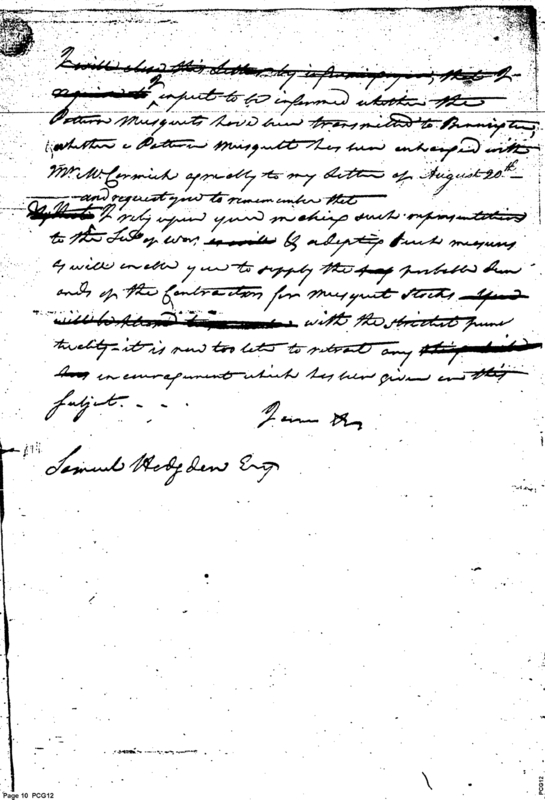 I will close this letter by informing you, that I
require to I expect to be informed whether the
Pattern Musquets have been transmitted to Bennington,
whether a Pattern Musquett has been exchanged with
Mr. McCormick agreeably to my letter of August 20th
and request you to remember that
I rely upon your making such representations
to the Secy of War, & adopting such measures
as will enable you to supply the probable dem
ands of the Contractors for Musquet Stocks
will be with the strictest punc
tuality - it is now too late to retract any
encouragement which has been given on this
subject. - - -
I am &
Samuel Hodgdon Esq
Page 10 PCG12
PCG12